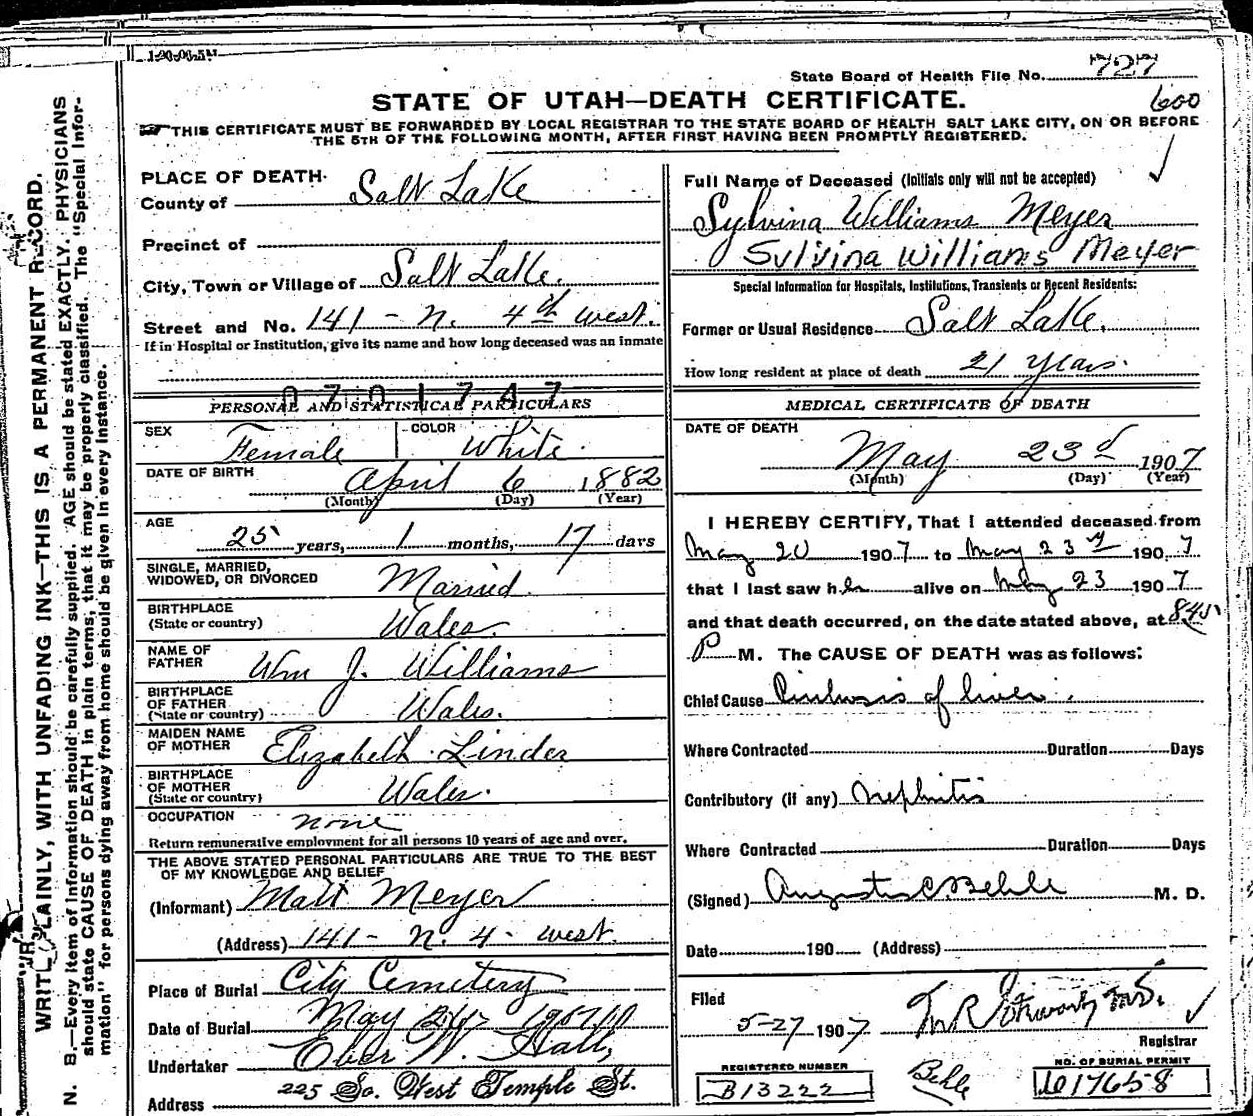 1-20-06-5M
State Board of Health File No. 727
STATE OF UTAH—DEATH CERTIFICATE.
600
THIS CERTIFICATE MUST BE FORWARDED BY LOCAL REGISTRAR TO THE STATE BOARD OF HEALTH SALT LAKE CITY, ON OR BEFORE
THE 5TH OF THE FOLLOWING MONTH, AFTER FIRST HAVING BEEN PROMPTLY REGISTERED.
WRITE PLAINLY, WITH UNFADING INK—THIS IS A PERMANENT RECORD.
N. B.—Every item of information should be carefully supplied. AGE should be stated EXACTLY. PHYSICIANS
should state CAUSE OF DEATH in plain terms, that it may be properly classified. The "Special Infor-
mation" for persons dying away from home should be given in every instance.
PLACE OF DEATH
County of Salt Lake
Precinct of
City, Town or Village of Salt Lake.
Street and No. 141 - N. 4th West.
If in Hospital or Institution, give its name and how long deceased was an inmate
0701747
PERSONAL AND STATISTICAL PARTICULARS
SEX Female COLOR White.
DATE OF BIRTH April 6 1882
(Month) (Day) (Year)
AGE
25 years, 1 months, 17 days
SINGLE, MARRIED,
WIDOWED, OR DIVORCED Married.
BIRTHPLACE
(State or country) Wales.
NAME OF
FATHER Wm J. Williams
BIRTHPLACE
OF FATHER
(State or country) Wales.
MAIDEN NAME
OF MOTHER Elizabeth Linder
BIRTHPLACE
OF MOTHER
(State or country) Wales.
OCCUPATION none
Return remunerative employment for all persons 10 years of age and over.
THE ABOVE STATED PERSONAL PARTICULARS ARE TRUE TO THE BEST
OF MY KNOWLEDGE AND BELIEF
(Informant) Matt Meyer
(Address) 141 - N. 4 - West.
Place of Burial City Cemetery
Date of Burial May 26 1907
Undertaker Eber W. Hall,
Address 225 So. West Temple St.
Full Name of Deceased (Initials only will not be accepted)
Sylvina Williams Meyer
Sylvina Williams Meyer
Special Information for Hospitals, Institutions, Transients or Recent Residents:
Former or Usual Residence Salt Lake.
How long resident at place of death 21 years.
MEDICAL CERTIFICATE OF DEATH
DATE OF DEATH
May 23d 1907
(Month) (Day) (Year)
I HEREBY CERTIFY, That I attended deceased from
May 20 1907 to May 23d 1907
that I last saw her alive on May 23 1907
and that death occurred, on the date stated above, at 845
P M. The CAUSE OF DEATH was as follows:
Chief Cause Cirrhosis of liver.
Where Contracted Duration Days
Contributory (if any) Nephritis
Where Contracted Duration Days
(Signed) Augustus C Behle M. D.
Date 190 (Address)
Filed
5-27 1907
Registrar
REGISTERED NUMBER
B13222
Behle
NO. OF BURIAL PERMIT
617658